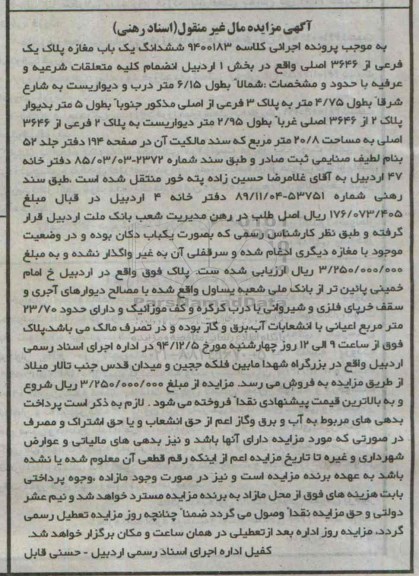 آگهی مزایده مال غیر منقول(اسناد رهنی)
به موجب پرونده اجرائی کلاسه ۹۴۰۰۱۸۳ ششدانگ یک باب مغازه پلاک یک
فرعی از ۳۶۴۶ اصلی واقع در بخش ۱ اردبیل انضمام کلیه متعلقات شرعیه و
عرفیه با حدود و مشخصات :شمالاً بطول ۶/۱۵ متر درب و دیواریست به شارع
شرقاً بطول ۴/۷۵ متر به پلاک ۳ فرعی از اصلی مذکور جنوباً بطول ۵ متر بدیوار
پلاک ۲ از ۳۶۴۶ اصلی غرباً بطول ۲/۹۵ متر دیواریست به پلاک ۲ فرعی از ۳۶۴۶
اصلی به مساحت ۲۰/۸ متر مربع که سند مالکیت آن در صفحه ۱۹۴ دفتر جلد ۵۲
بنام لطیف صنایمی ثبت صادر و طبق سند شماره ۲۳۷۲-۸۵/۰۳/۰۳ دفتر خانه
۴۷ اردبیل به آقای غلامرضا حسین زاده پته خور منتقل شده است .طبق سند
رهنی شماره ۵۳۷۵۱-۸۹/۱۱/۰۴ دفتر خانه ۴ اردبیل در قبال مبلغ
۱۷۶/۰۷۳/۴۰۵ ریال اصل طلب در رهن مدیریت شعب بانک ملت اردبیل قرار
گرفته و طبق نظر کارشناس رسمی که بصورت یکباب دکان بوده و در وضعیت
موجود با مغازه دیگری ادغام شده و سرقفلی آن به غیر واگذار نشده و به مبلغ
۳/۲۵۰/۰۰۰/۰۰۰ ریال ارزیابی شده ست. پلاک فوق واقع در اردبیل خ امام
خمینی پائین تر از بانک ملی شعبه یساول واقع شده با مصالح دیوارهای آجری و
سقف خرپای فلزی و شیروانی با درب کرکره و کف موزائیک و دارای حدود ۲۳/۷۰
متر مربع اعیانی با انشعابات آب،برق و گاز بوده و در تصرف مالک می باشد،پلاک
فوق از ساعت ۹ الی ۱۲ روز چهارشنبه مورخ ۹۴/۱۲/۵ در اداره اجرای اسناد رسمی
اردبیل واقع در بزرگراه شهدا مابین فلکه ججین و میدان قدس جنب تالار میلاد
از طریق مزایده به فروش می رسد. مزایده از مبلغ ۳/۲۵۰/۰۰۰/۰۰۰ ریال شروع
و به بالاترین قیمت پیشنهادی نقداً فروخته می شود . لازم به ذکر است پرداخت
بدهی های مربوط به آب و برق وگاز اعم از حق انشعاب و یا حق اشتراک و مصرف
در صورتی که مورد مزایده دارای آنها باشد و نیز بدهی های مالیاتی و عوارض
شهرداری و غیره تا تاریخ مزایده اعم از اینکه رقم قطعی آن معلوم شده یا نشده
باشد به عهده برنده مزایده است و نیز در صورت وجود مازاده ،وجوه پرداختی
بابت هزینه های فوق از محل مازاد به برنده مزایده مسترد خواهد شد و نیم عشر
دولتی و حق مزایده نقداً وصول می گردد ضمناً چنانچه روز مزایده تعطیل رسمی
گردد، مزایده روز اداره بعد ازتعطیلی در همان ساعت و مکان برگزار خواهد شد.
کفیل اداره اجرای اسناد رسمی اردبیل - حسنی قابل